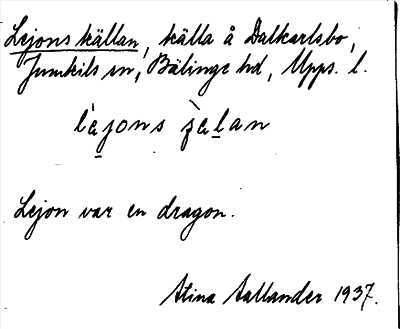 Lejonskällan, källa å Dalkarlsbo,
Jumkils sn, Bälinge hd, Upps. l.
Lejon var en dragon.
Stina Aallander 1937.